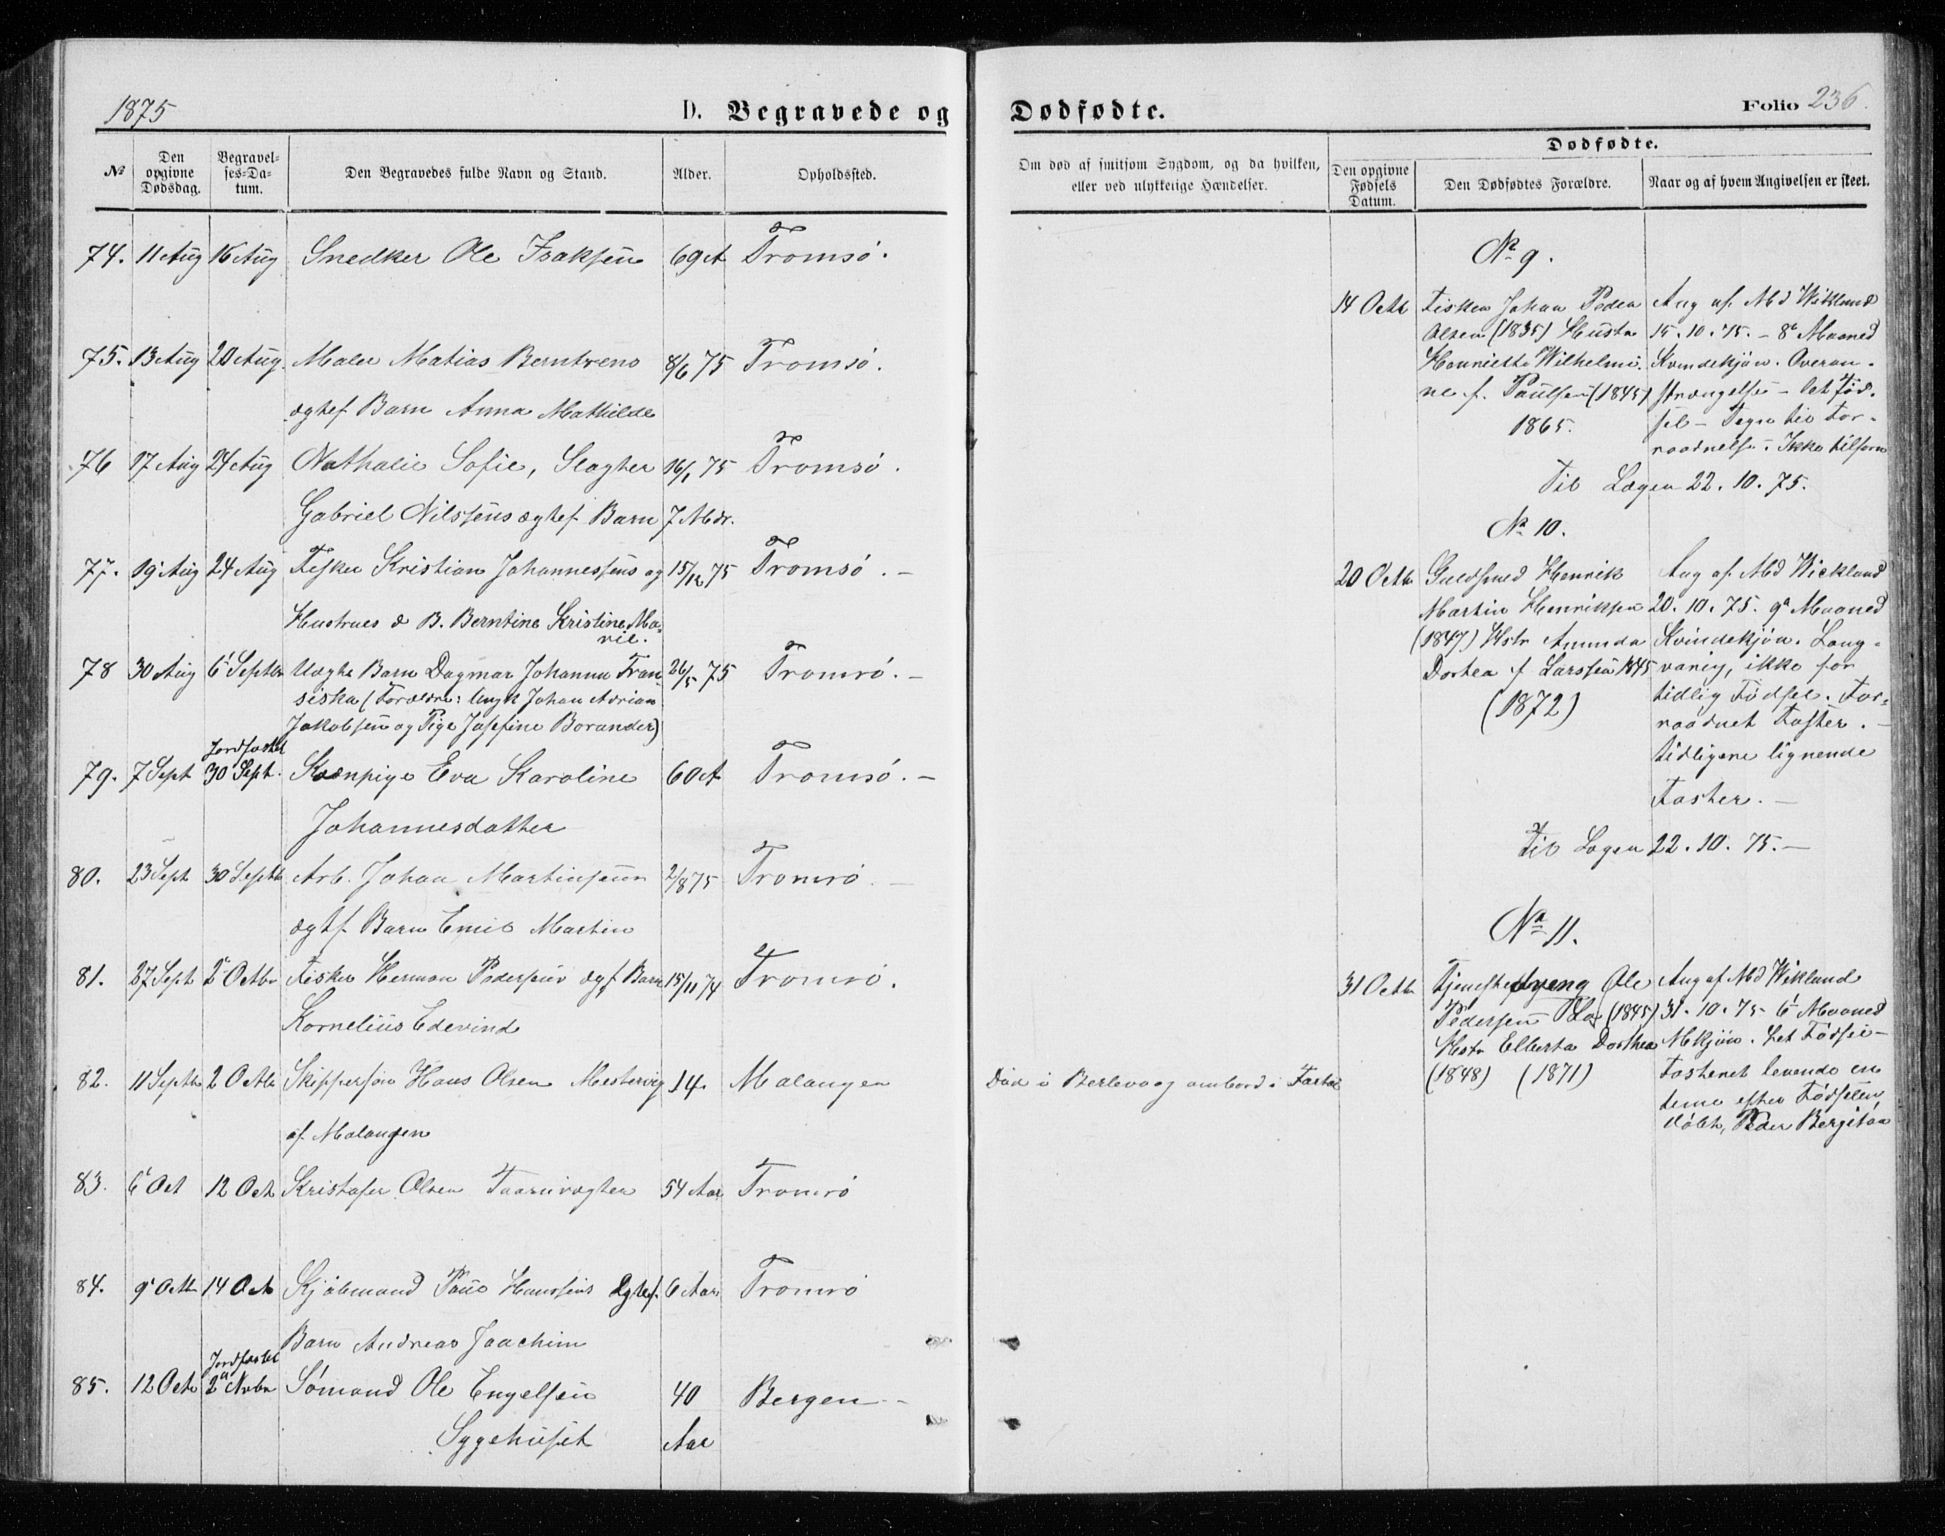 1875 D. Begravede og Dødfødte. Folio 236.
№ Den opgivne Dødsdag. Begravelses-Datum. Den Begravedes fulde Navn og Stand. Alder. Opholdssted.
Om død af smitsom Sygdom, og da hvilken, eller ved ulykkelige Hændelser.
Dødfødte.
Den opgivne Fødsels Datum. Den Dødfødtes Forældre. Naar og af hvem Angivelsen er skeet.
74. 11 Aug 16 Aug Snedker Ole Isaksen 69 A Tromsø.
75. 13 Aug 20 Aug. Maler Matias Berntzens 8/6 75 Tromsø.
ægtef Barn Anna Mathilde
76 17 Aug 24 Aug Nathalie Sofie, Slagter 16/1 75 Tromsø.
Gabriel Nilssens ægtef Barn 7 Mdr.
77. 19 Aug 24 Aug Fisker Kristian Johannessens og 15/12 75 Tromsø. -
Hustrues d B. Berntine Kristine Ma-
rie.
78 30 Aug 6 Septbr Uægte Barn Dagmar Johanna Fran- 26/5 75 Tromsø. -
siska (Forældre: Ungk Johan Adrian
Jakobsen og Pige Josefine Borander)
Jordfæstet
79. 7 Sept 30 Sept. Kvænpige Eva Karoline 60 A Tromsø. -
Johannesdatter
80. 23 Sept 30 Septb Arb. Johan Martinsens 2/8 75 Tromsø. -
ægtf Barn Emil Martin
81. 27 Sept 2 Octbr Fisker Herman Pedersens ægf Barn 15/11 74 Tromsø.
Kornelius Edevind
82. 11 Septb 2 Octb Skippersøn Hans Olsen Mestervig 14. Malangen Død i Berlevaag ombord i Fartøi
af Malangen
83. 6 Oct 12 Octb Kristofer Olsen Taarnvægter 54 Aar Tromsø
84. 9 Octb 14 Oct Skjølmand Paul Hanssens ægtef. 6 Aar Tromsø
Barn Andreas Joachim
Jordfæstet
85. 12 Octb 2 Novbr Sømand Ole Engelsen 40 Bergen -
Sygehuset Aar
No 9.
14 Octb Fisker Johan Peder Ang af Md Wiklund
Olsen (1835) Hustr 15.10.75. - 8 Maaned
Henriette Wilhelmi- Kvindekjøn. Overan-
ne f. Paulsen (1845) strængelse - Let Fød-
1865. sel - Tegn til For-
raadnelse. Ikke tilforn
Til Lægen 22.10.75.
No 10.
20 Octb Guldsmed Henrik Ang af Md Wicklund
Martin Henriksen 20.10.75. 9 Maaned
(1847) Hstr Amunda Kvindekjøn. Lang-
Dortea f Larssen 1845 varig, ikke for
(1872) tidlig Fødsel. For-
raadnet Foster. -
tidligere lignende
Foster. -
Til Lægen 22.10.75. -
No 11.
31 Octb Tjenestedreng Ole Ang af Md Wiklund
Pedersen (1845) 31.10.75 - 6 Maaned
Hstr Elberta Dorthea Mkjøn. Let Fødsel -
(1848) (1871) Fosteret levende en
time efter Fødselen
døbt, Peder Bergitan